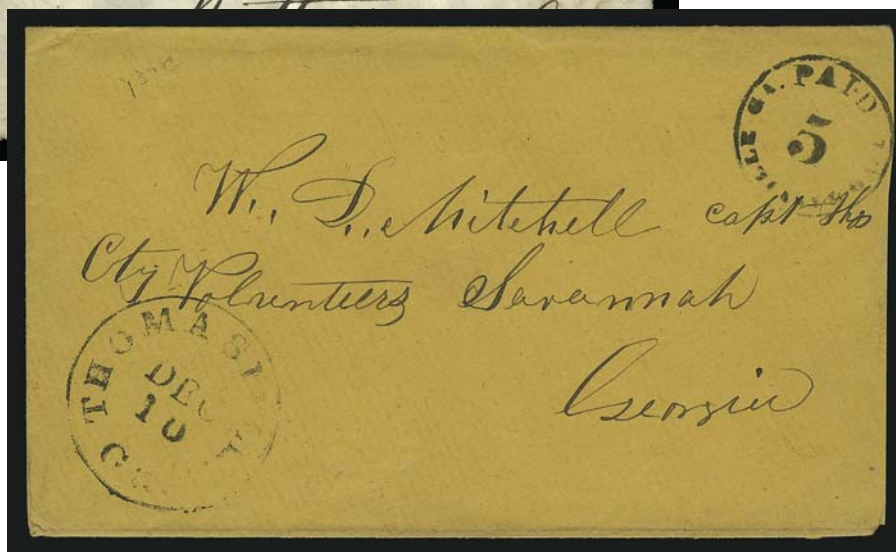 PAID
5
W. D. Mitchell capt Tho
Cty Volunteers Savannah
Georgia
THOMASVILLE
DEC
10
GA.